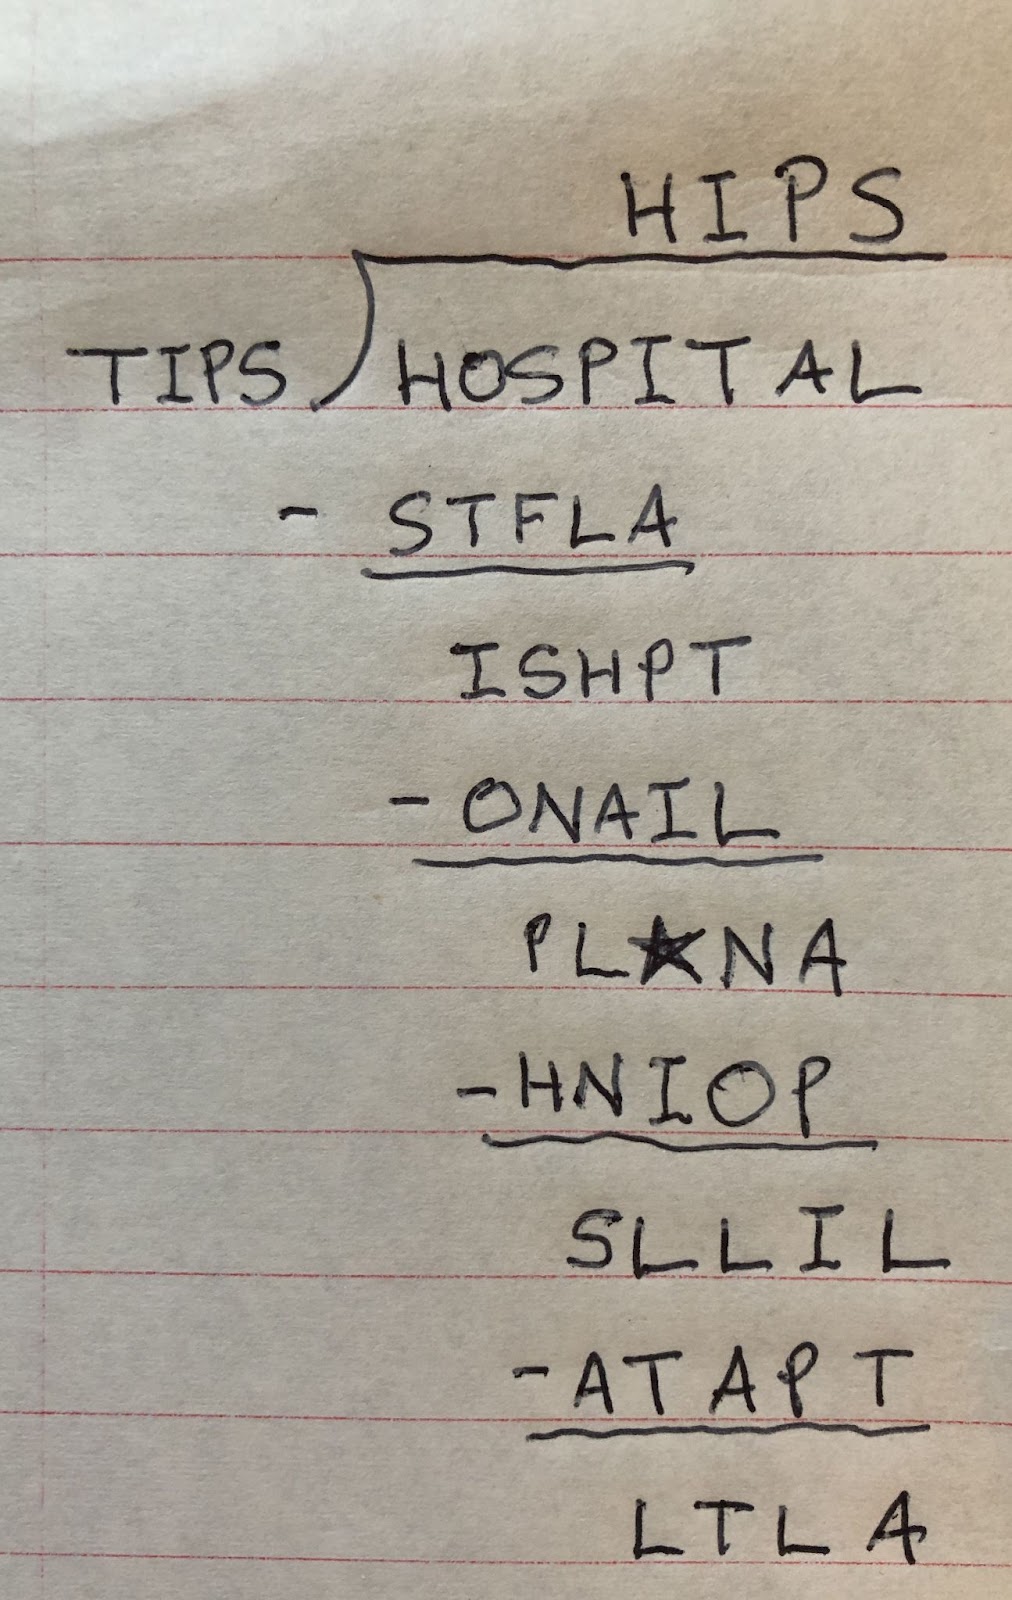 HIPS
TIPS HOSPITAL
- STFLA
ISHPT
- ONAIL
PL★NA
- HNIOP
SLLIL
- ATAPT
LTLA